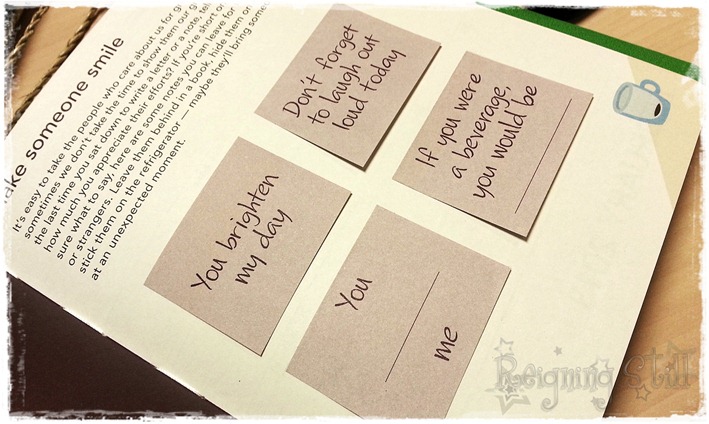 ake someone smile
It's easy to take the people who care about us for
sometimes we don't take the time to show them our
the last time you sat down to write a letter or a note,
how much you appreciate their efforts? If you're short
sure what to say, here are some notes you can leave for
or strangers. Leave them behind in a book, hide them
stick them on the refrigerator — maybe they'll bring
at an unexpected moment.
Don't forget
to laugh out
loud today
If you were
a beverage,
you would be
You brighten
my day
You
me
Reigning Still